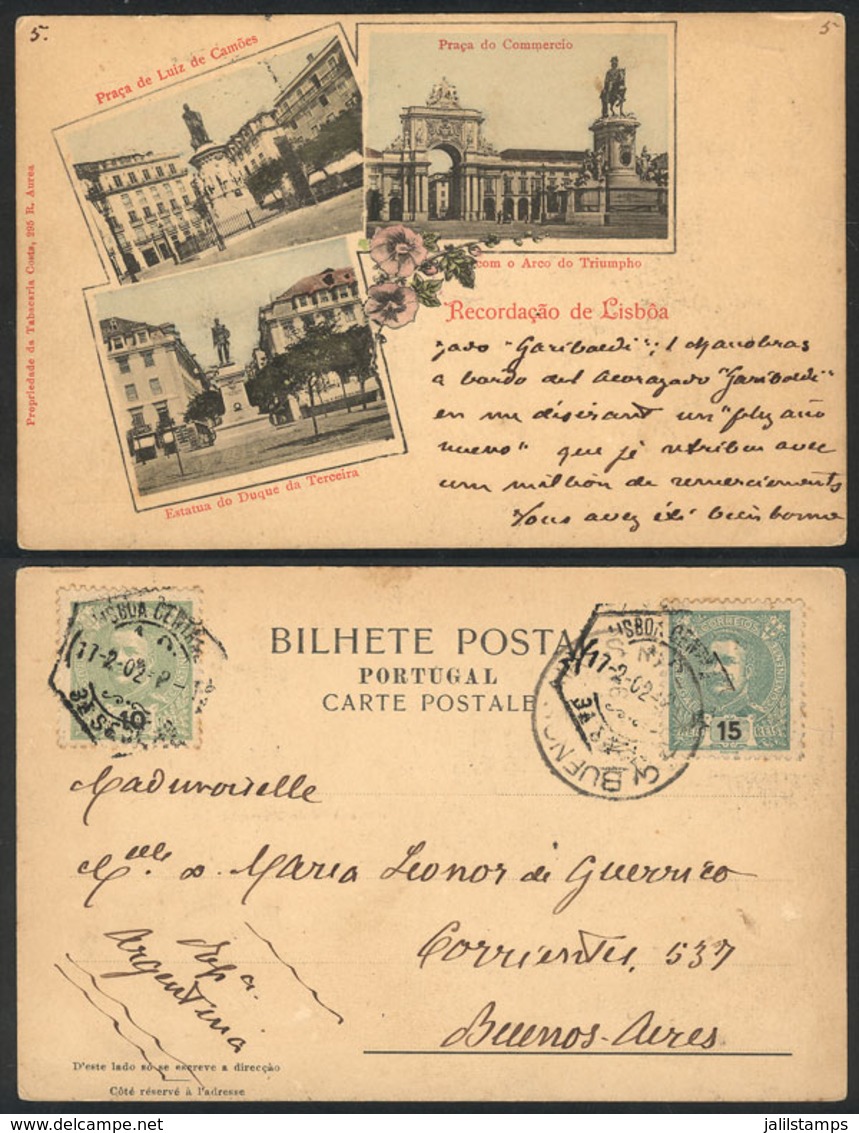 5.
5
Praça de Luiz de Camões
Praça do Commercio
com o Arco do Triumpho
Propriedade da Tabacaria Costa, 295 R. Aurea
Estatua do Duque da Terceira
Recordação de Lisbôa
zado "Garibaldi"; 1 Manobras
a bordo del Acorazado "Garibaldi"
en me disirant un "feliz año
nuevo" que je retribue avec
un million de remerciements
Vous avez été bien bonne
LISBOA CENTRAL
17-2-02
10
BILHETE POSTAL
PORTUGAL
CARTE POSTALE
LISBOA CENTRAL
17-2-02
BUENOS
CORREIOS
15
REIS
Mademoiselle
Mlle D. Maria Leonor de Guerrico
Corrientes, 537
Buenos-Aires
Rep. a.
Argentina
D'este lado só se escreve a direcção
Côté réservé à l'adresse
jalilstamps